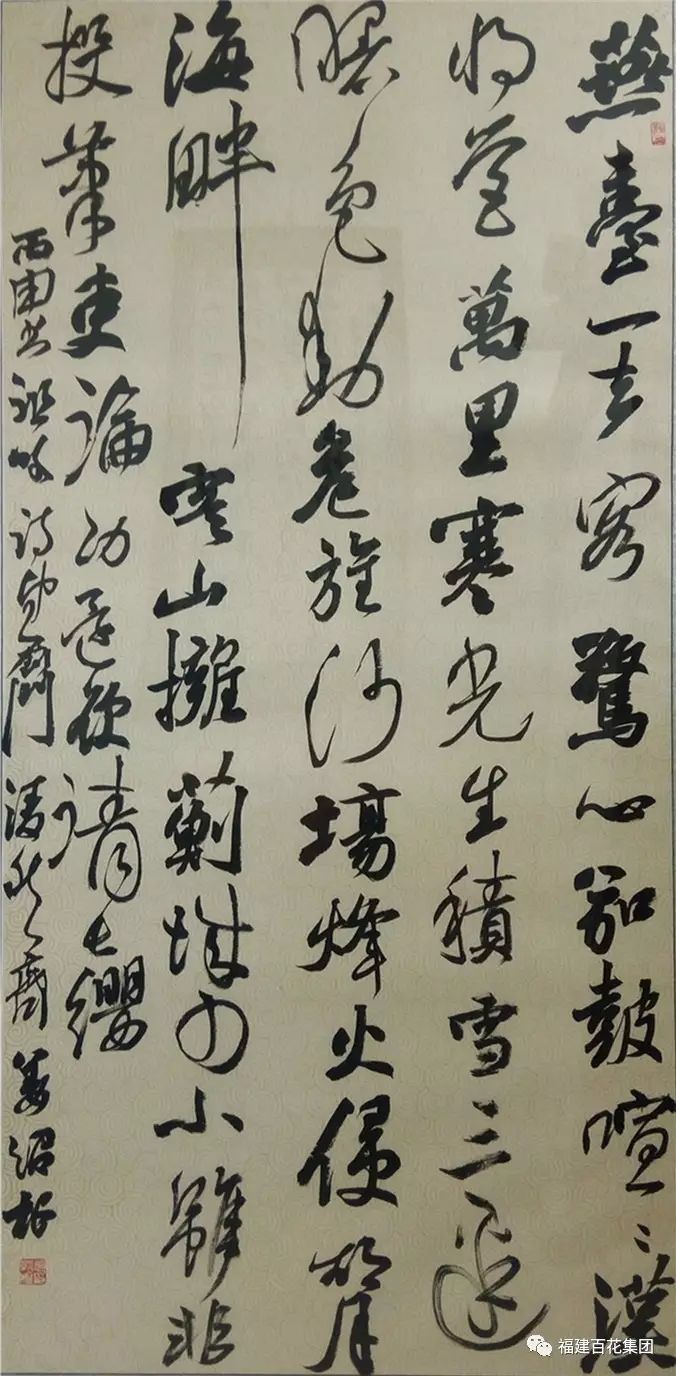 燕臺一去客驚心笳鼓喧〻漢
将营萬里寒光生積雪三邊
曙色動危旌沙場烽火侵胡月
海畔雲山擁薊城少小雖非
投筆吏論功還欲請长纓
丙申书祖咏诗望薊门 斋 姜绍
福建百花集团